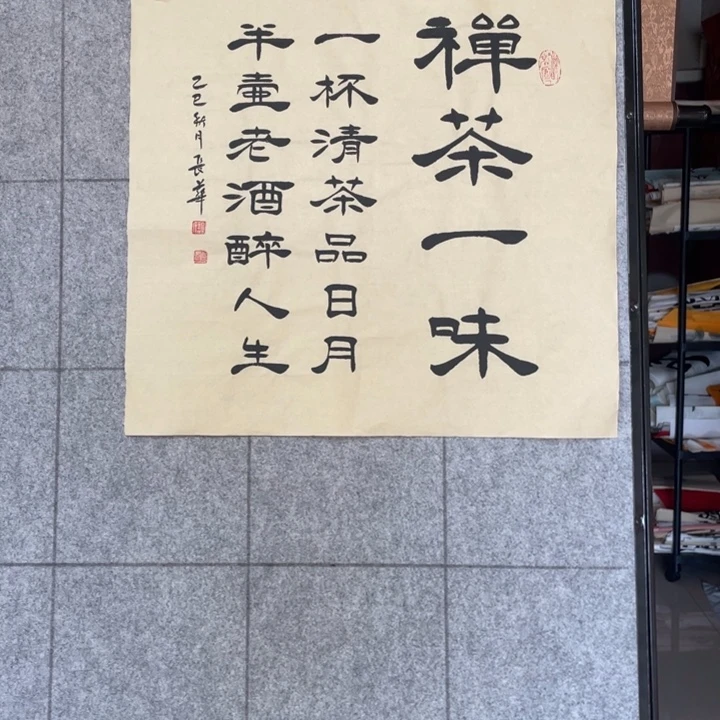 禪茶一味
一杯清茶品日月
半壷老酒醉人生
乙巳秋月長華